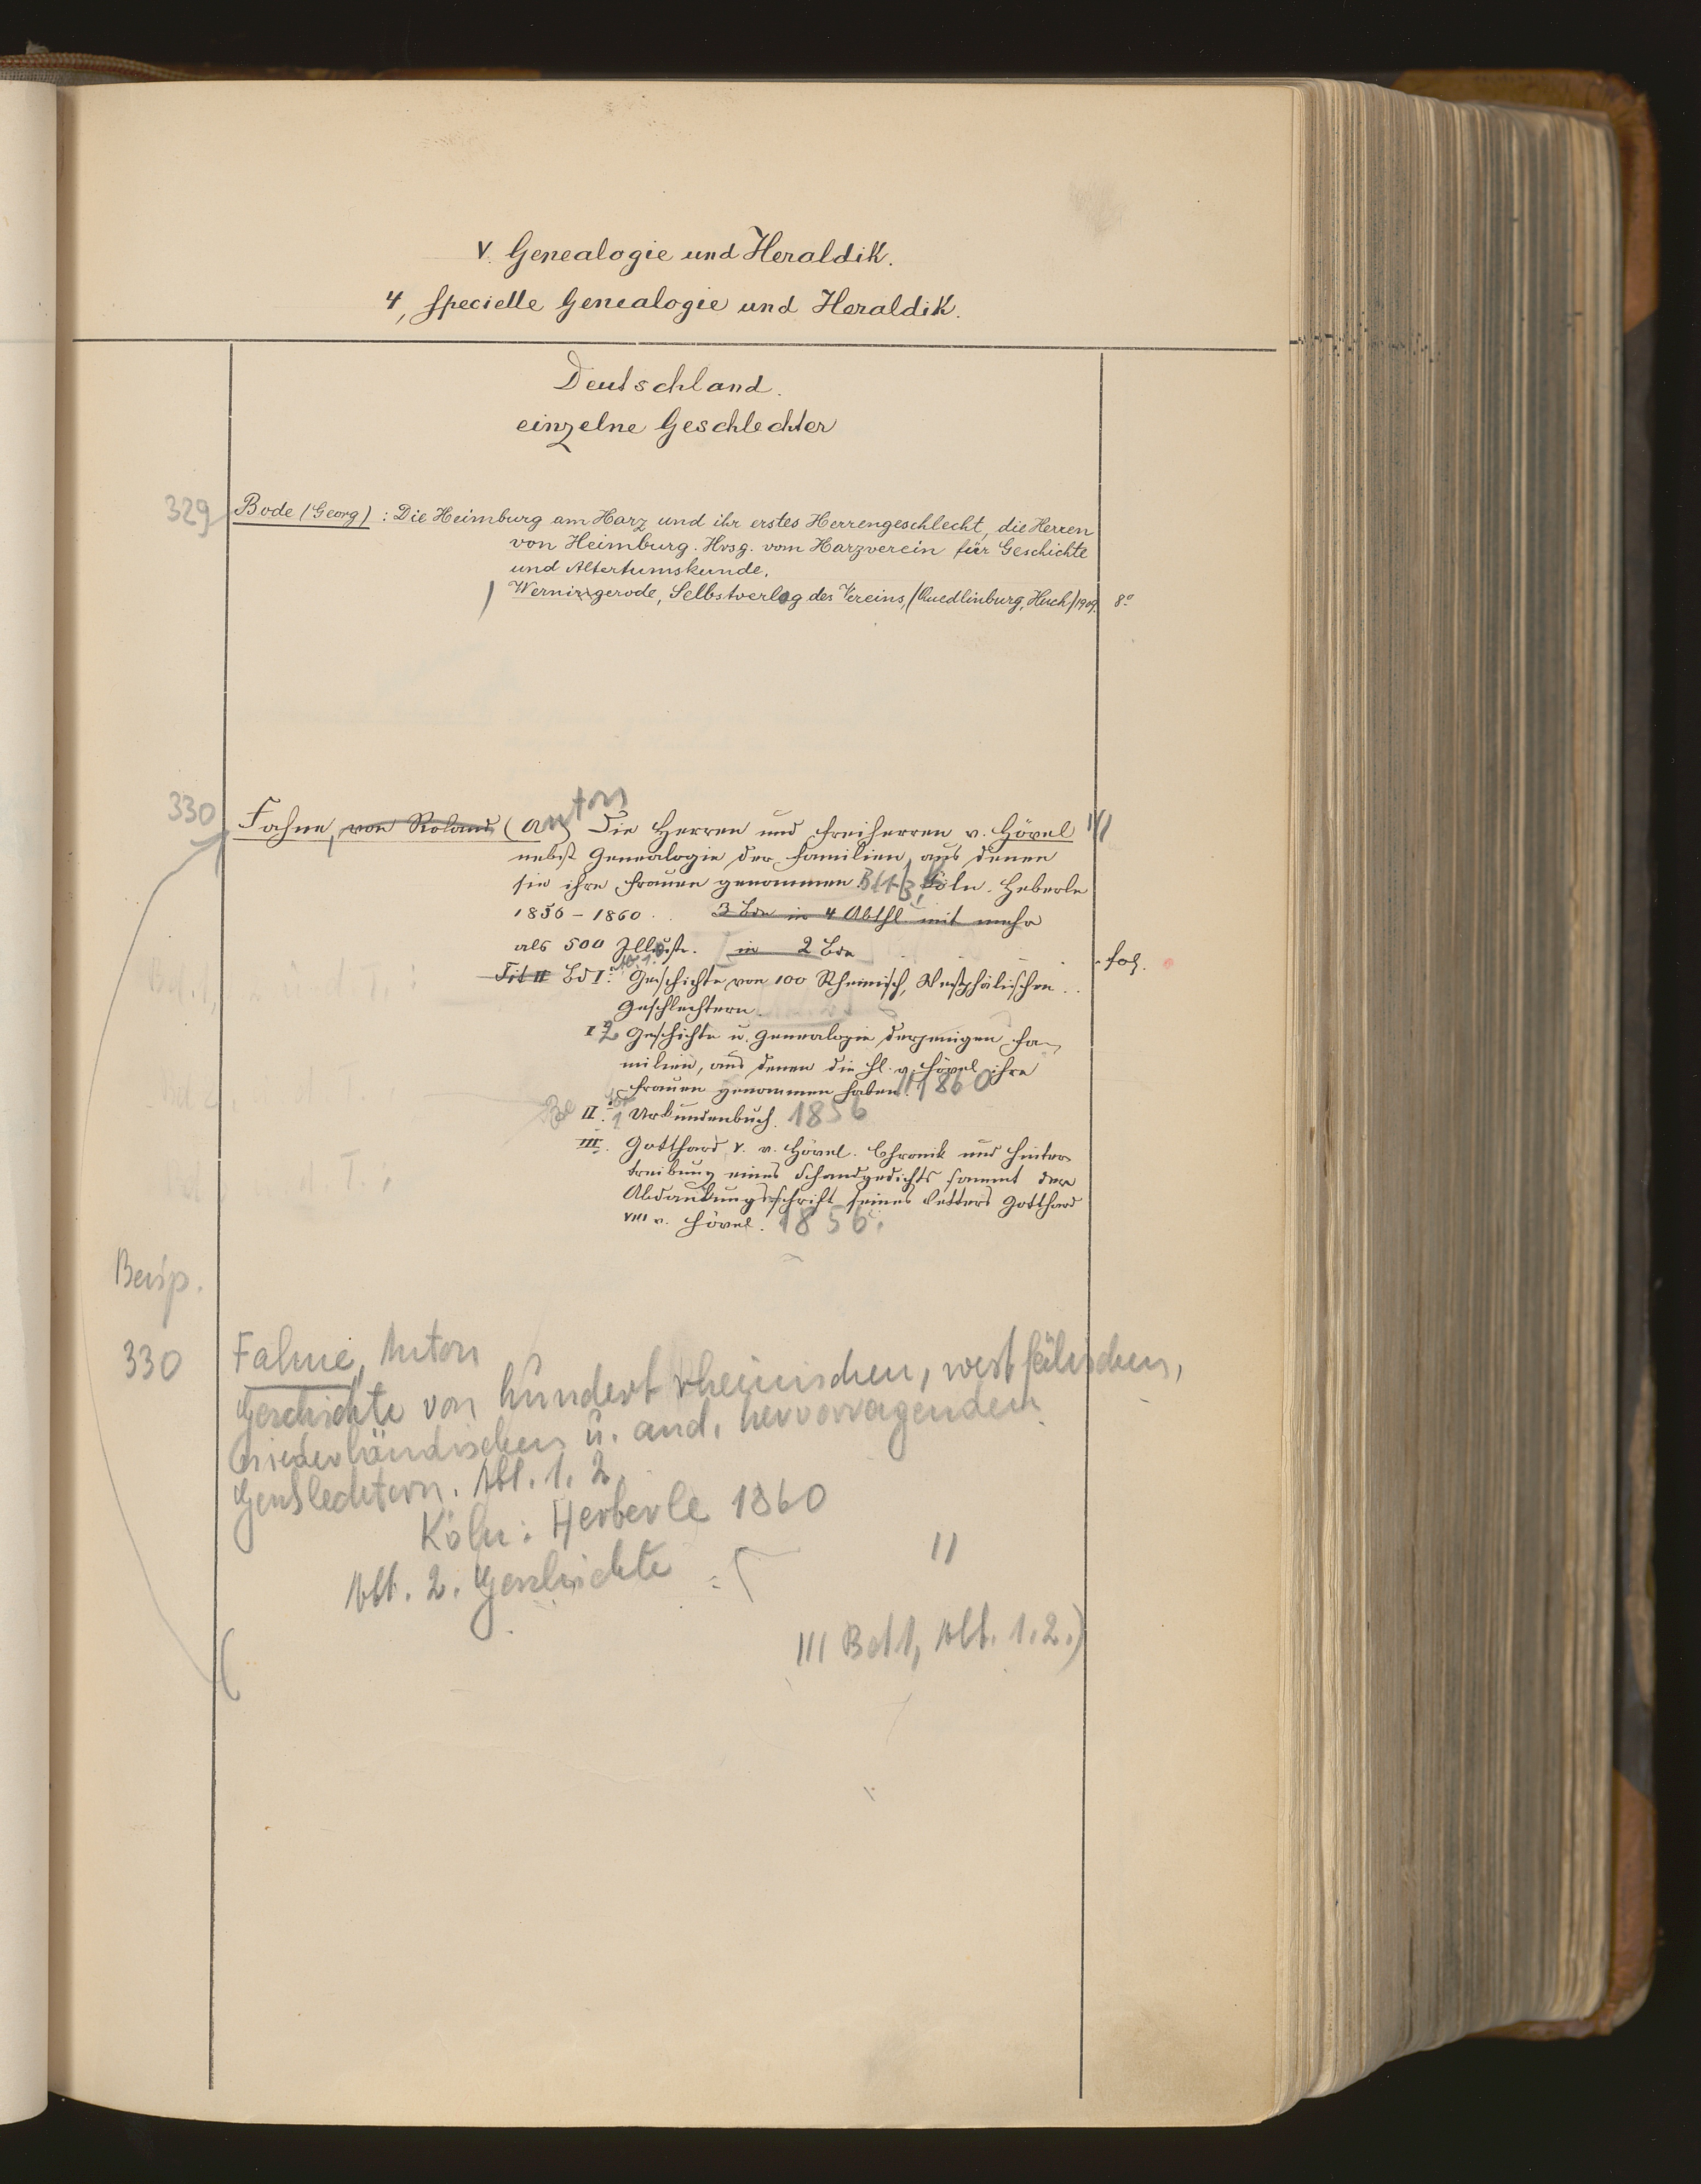 V. Genealogie und Heraldik.
4, Specielle Genealogie und Heraldik.
Deutschland.
einzelne Geschlechter
329 Bode (Georg) : Die Heimburg am Harz und ihr erstes Herrengeschlecht, die Herren
von Heimburg. Hrsg. vom Harzverein für Geschichte
und Altertumskunde.
Wernirgerode, Selbstverlag des Vereins, (Quedlinburg, Huch) 1909. 8°
330 Fahne, von Roland (Anton) Die Herren und Freiherren v. Hövel
nebst Genealogie der Familien, aus denen
sie ihre Frauen genommen. Bd 1-3, Cöln. Heberle
1856 - 1860. 3 Bde in 4 Abthl mit mehr
als 500 Illustr. in 2 Bde fol.
Tit II Bd I. Geschichte von 100 Rheinisch, Westphälischen ..
Geschlechtern.
I 2 Geschichte u. Genealogie derjenigen Fa-
milien, aus denen die H. v. Hövel ihre
Frauen genommen haben. 1860
II. Urkundenbuch. 1856
III. Gotthard V. v. Hövel. Chronik und Hinter
treibung eines Schandgedichts sammt der
Abdankungsschrift seines Vetters Gotthard
VIII v. Hövel. 1856.
Beisp.
330 Fahne, Anton
Geschichte von hundert rheinischen, westfälischen,
niederländischen u. and. hervorragenden
Geschlechtern. Abt. 1. 2.
Köln: Herberle 1860
Abt. 2. Geschichte : "
( III Bd 1, Abt. 1.2.)